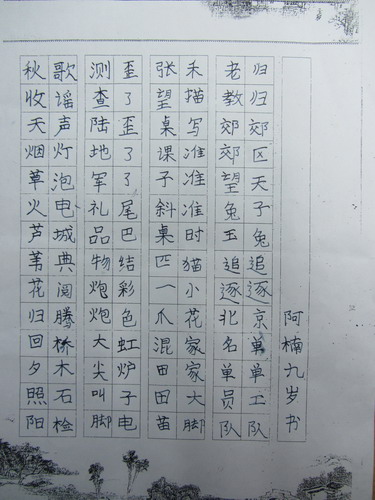 秋收天烟草火芦苇花归回夕照阳
歌谣声灯泡电城典阅腾桥木石检
测查陆地军礼品物炮炮大尖叫脚
歪了歪了了尾巴结彩色虹炉子电
张望桌课子斜桌匹一爪混田田苗
禾描写准准准时猫小花家家大脚
老教郊郊望兔玉追逐北名单员队
归归郊区天子兔追逐京单单工队
阿楠九岁书